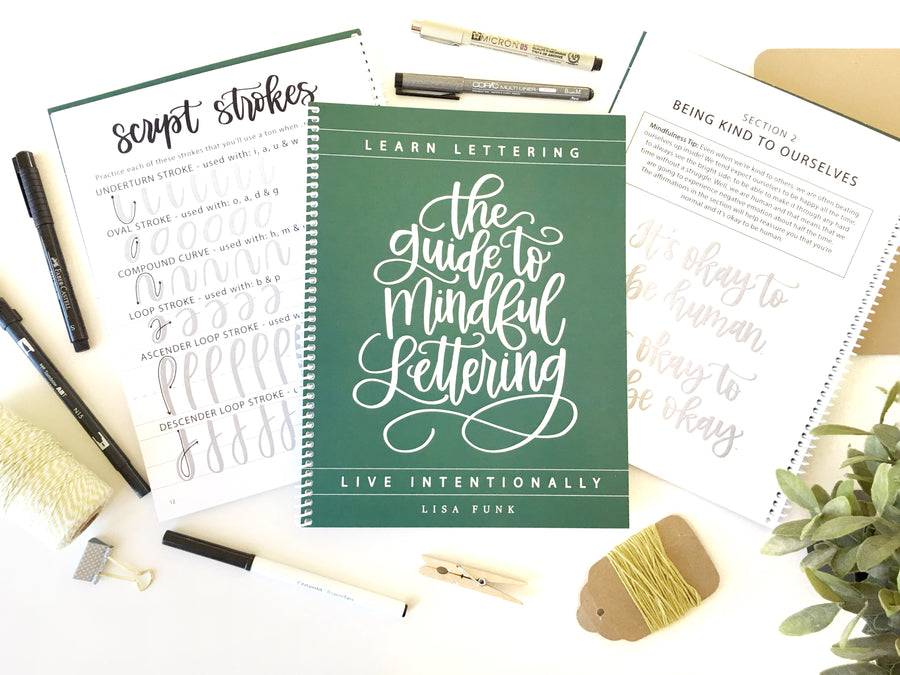 script strokes
Practice each of these strokes that you'll use a ton when
UNDERTURN STROKE - used with: i, a, u & w
OVAL STROKE - used with: o, a, d & g
COMPOUND CURVE - used with: h, m &
LOOP STROKE - used with: b & p
ASCENDER LOOP STROKE - used w
DESCENDER LOOP STROKE - u
12
LEARN LETTERING
the
guide to
Mindful
Lettering
LIVE INTENTIONALLY
LISA FUNK
SECTION 2
BEING KIND TO OURSELVES
Mindfulness Tip: Even when we're kind to others, we are often beating
ourselves up inside! We mind expect ourselves to be happy all the time,
to always see the bright side, to be able to make it through any hard
time without a struggle. Well, we are human and that means that we
are going to experience negative emotion about half the time.
The affirmations in the section will help reassure you that you're
normal and it's okay to be human.
It's okay to
be human.
okay to
be okay.
MICRON 05
COPIC MULTI LINER
FABER-CASTELL S
ABT N15
Crayola